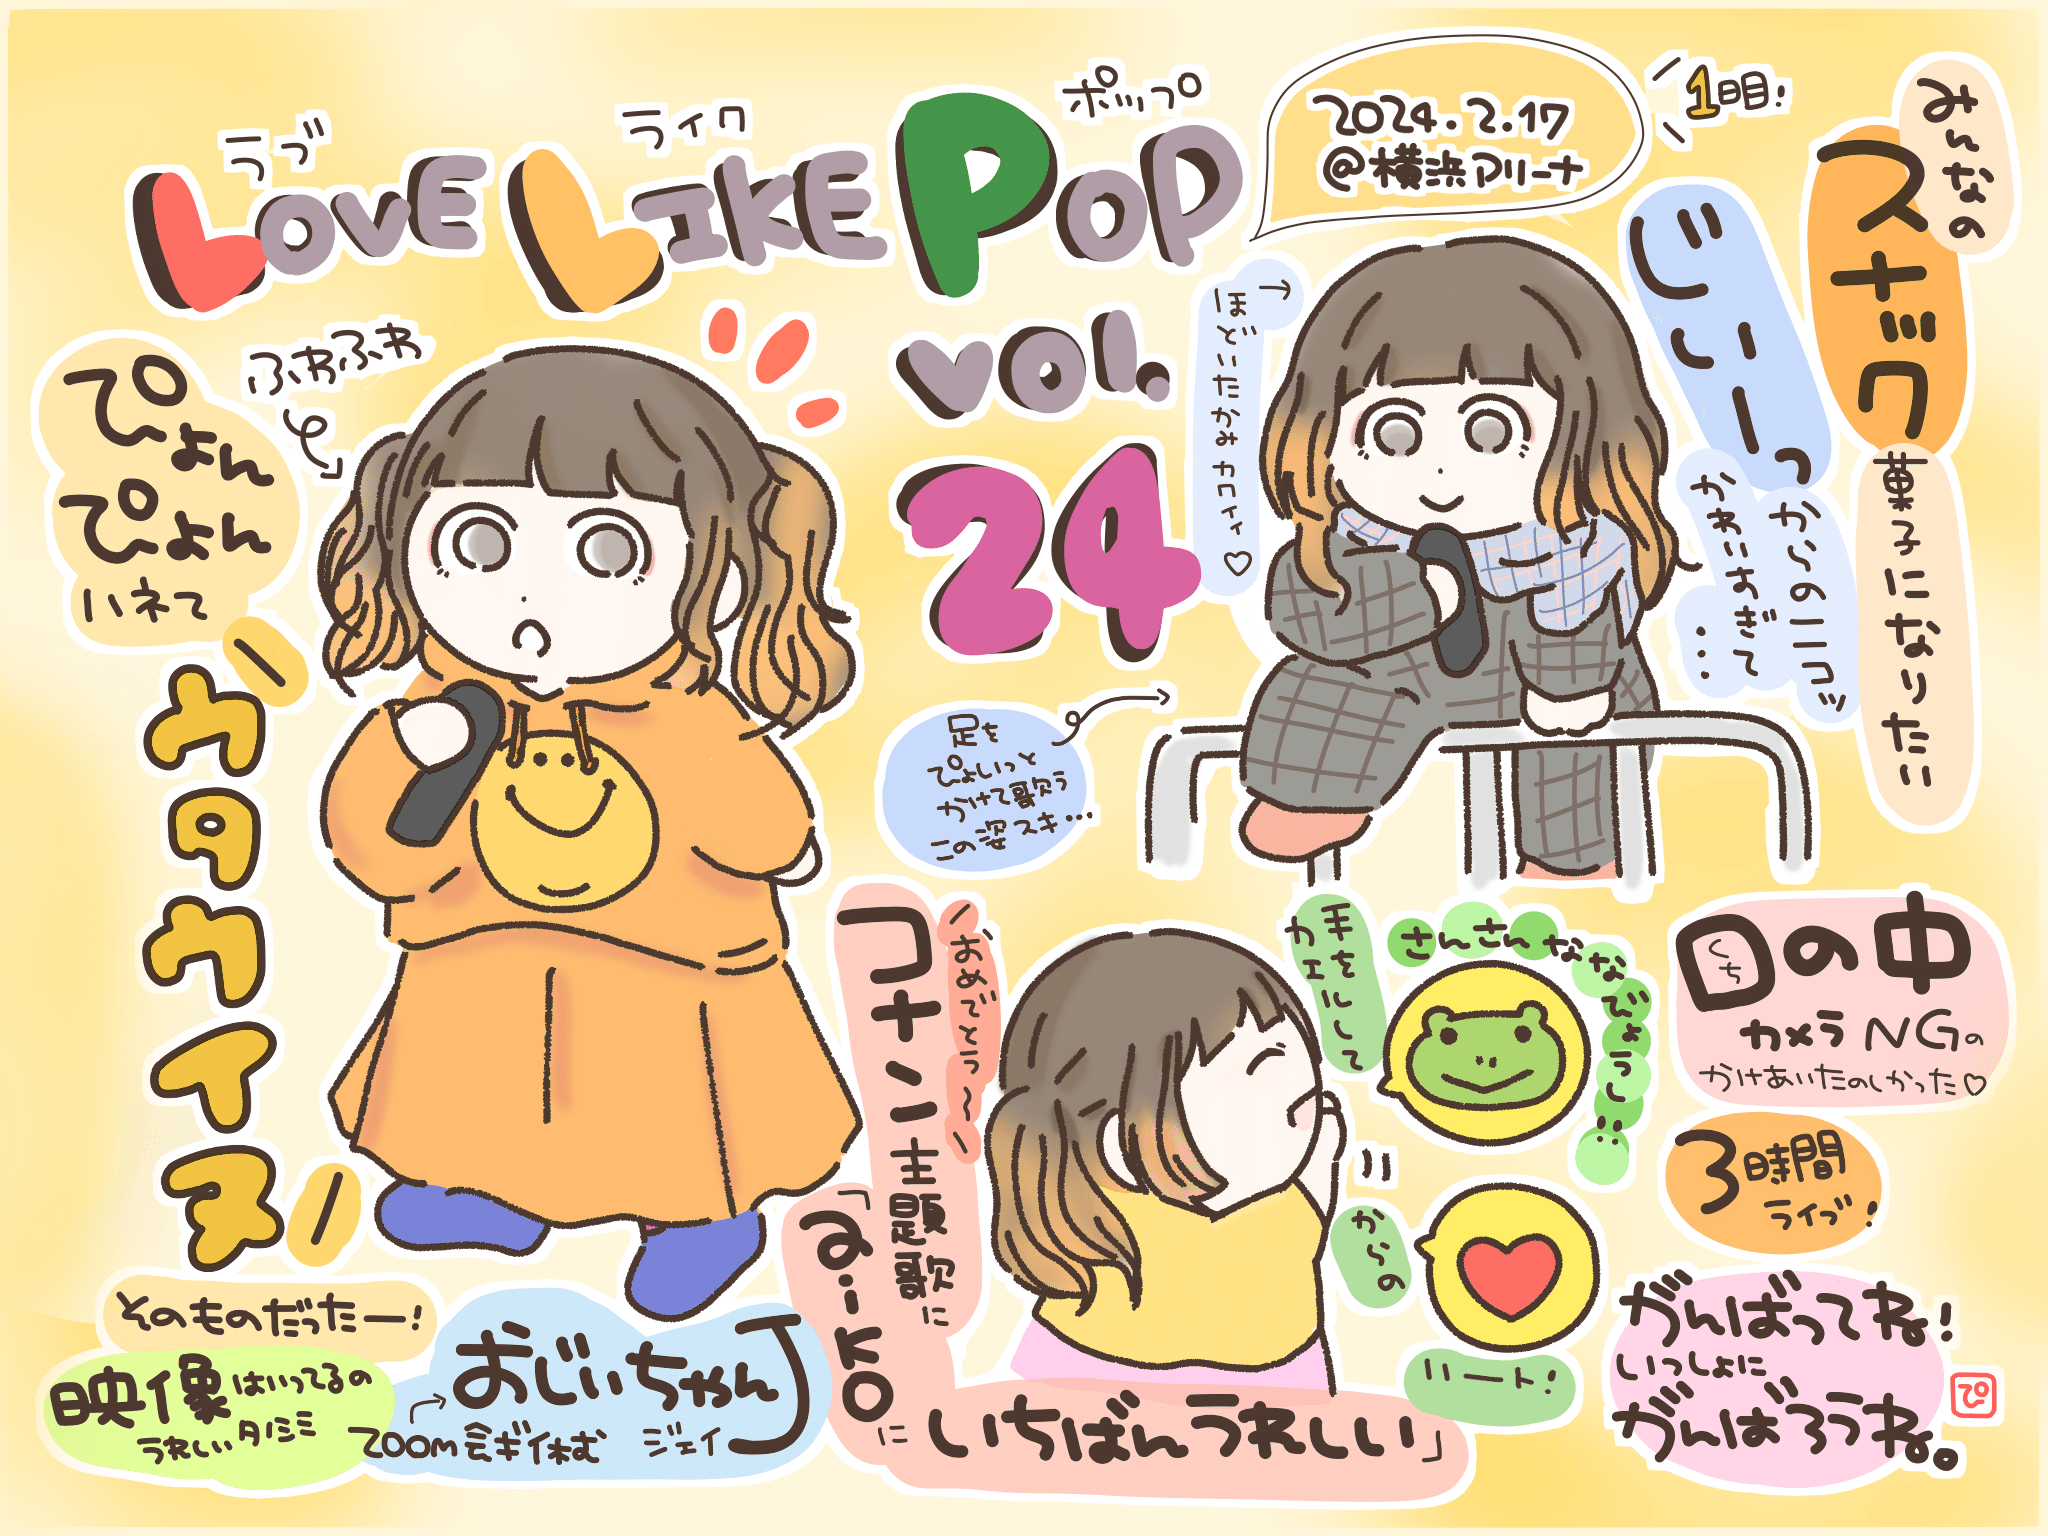 ラブ ライク ポップ
LOVE LIKE POP
vol.
24
2024.2.17
@横浜アリーナ
1日目!
みんなの
スナック
菓子になりたい
じぃーっ
からのニコッ
かわいすぎて
…
→
ほどいたかみカワイイ♡
ふわふわ
ぴょん
ぴょん
ハネて
ウタウイヌ
そのものだったー!
映像はいってるの
うれしいタノシミ
おじいちゃんJ
ジェイ
→ZOOM会ギ休む
足を
ぴょいっと
かけて歌う
この姿スキ…
おめでとう〜
コナン主題歌に
「a・i・ko」に
いちばんうれしい」
手をグルして
カエル
さんさんななびょうし
からの
ハート!
口の中
くち
カメラNGの
かけあいたのしかった♡
3時間
ライブ!
がんばってね!
いっしょに
がんばろうね。
ぴ